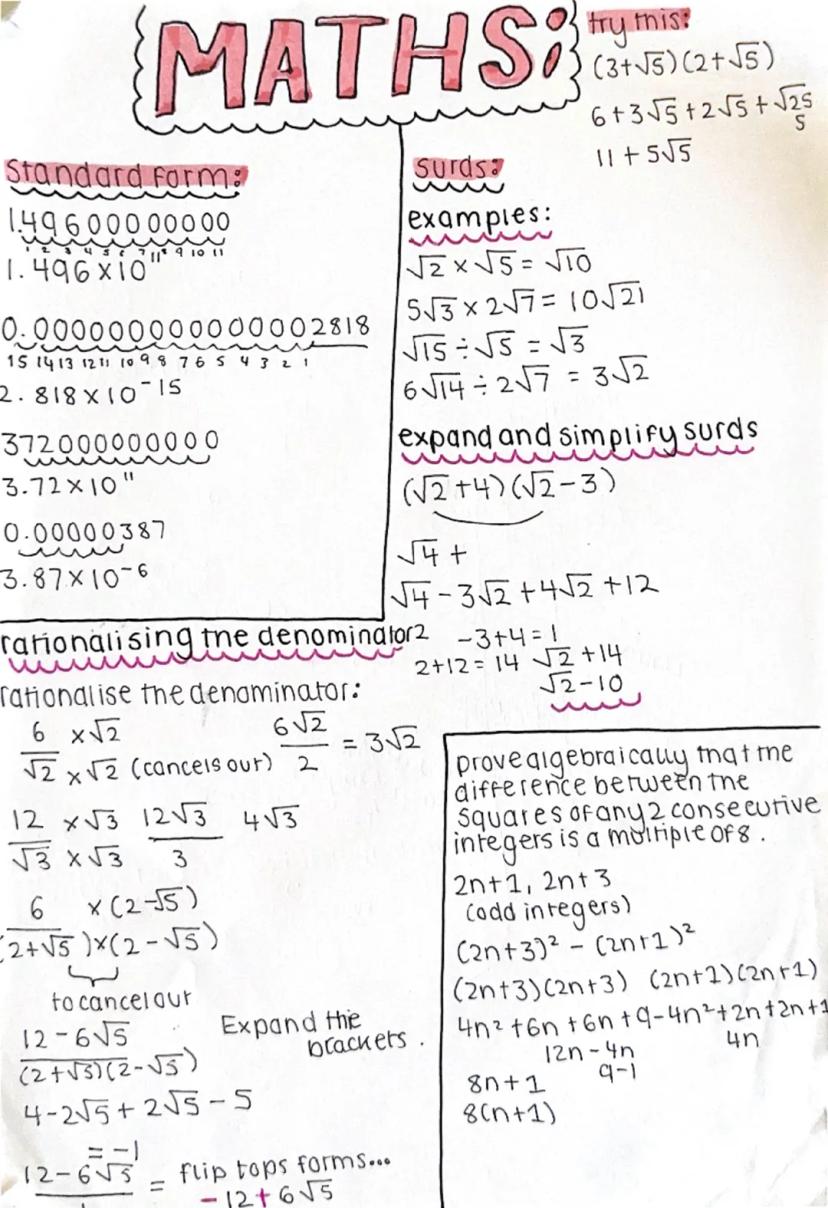 MATHS:
try this:
(3+√5)(2+√5)
6+3√5+2√5+√25
5
11+5√5
Standard Form:
1.49600000000
1 2 3 4 5 6 7 8 9 10 11
1.496×10¹¹
0.0000000000000002818
15 14 13 12 11 10 9 8 7 6 5 4 3 2 1
2.818×10⁻¹⁵
372000000000
3.72×10¹¹
0.00000387
3.87×10⁻⁶
surds:
examples:
√2 × √5 = √10
5√3 × 2√7 = 10√21
√15 ÷ √5 = √3
6√14 ÷ 2√7 = 3√2
expand and simplify surds
(√2+4)(√2-3)
√4+
√4-3√2+4√2+12
2 -3+4=1
2+12=14 √2+14
√2-10
rationalising the denominator
rationalise the denominator:
6 ×√2 6√2
√2 ×√2 (cancels out) 2 = 3√2
12 ×√3 12√3 4√3
√3 ×√3 3
6 ×(2-√5)
(2+√5)×(2-√5)
to cancel out
12-6√5
(2+√5)(2-√5)
Expand the
brackets.
4-2√5+2√5-5
=-1
12-6√5 = flip tops forms...
-12+6√5
prove algebraically that the
difference between the
squares of any 2 consecutive
integers is a multiple of 8.
2n+1, 2n+3
(odd integers)
(2n+3)²-(2n+1)²
(2n+3)(2n+3) (2n+1)(2n+1)
4n²+6n+6n+9-4n²+2n+2n+1
12n-4n 4n
9-1
8n+1
8(n+1)